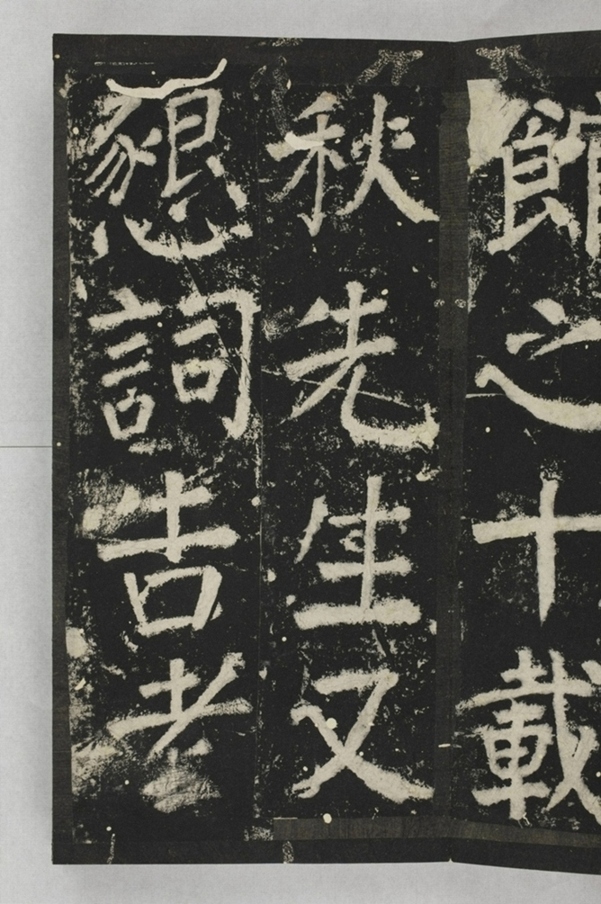 館之十載
秋先生又
懇詞告老